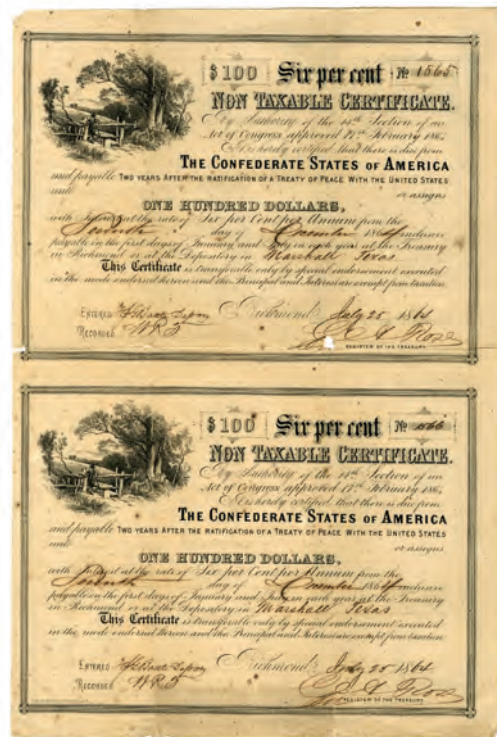 $100 Six per cent No 1565
NON TAXABLE CERTIFICATE.
By Authority of the 14th Section of an
Act of Congress approved 17th February 1864
It is hereby certified that there is due from
THE CONFEDERATE STATES OF AMERICA
and payable TWO YEARS AFTER THE RATIFICATION OF A TREATY OF PEACE WITH THE UNITED STATES
unto or assigns
ONE HUNDRED DOLLARS,
with Interest at the rate of Six per Cent per Annum from the
day of 1864 inclusive
payable on the first days of January and July in each year at the Treasury
in Richmond or at the Depository in Marshall Texas
This Certificate is transferable only by special endorsement executed
in the mode endorsed hereon and the Principal and Interest are exempt from taxation.
ENTERED
RECORDED Richmond, July 25 1864
Rose
REGISTER OF THE TREASURY
$100 Six per cent No 1566
NON TAXABLE CERTIFICATE.
By Authority of the 14th Section of an
Act of Congress approved 17th February 1864
It is hereby certified that there is due from
THE CONFEDERATE STATES OF AMERICA
and payable TWO YEARS AFTER THE RATIFICATION OF A TREATY OF PEACE WITH THE UNITED STATES
unto or assigns
ONE HUNDRED DOLLARS,
with Interest at the rate of Six per Cent per Annum from the
day of 1864 inclusive
payable on the first days of January and July in each year at the Treasury
in Richmond or at the Depository in Marshall Texas
This Certificate is transferable only by special endorsement executed
in the mode endorsed hereon and the Principal and Interest are exempt from taxation
ENTERED
RECORDED Richmond, July 25 1864
Rose
REGISTER OF THE TREASURY